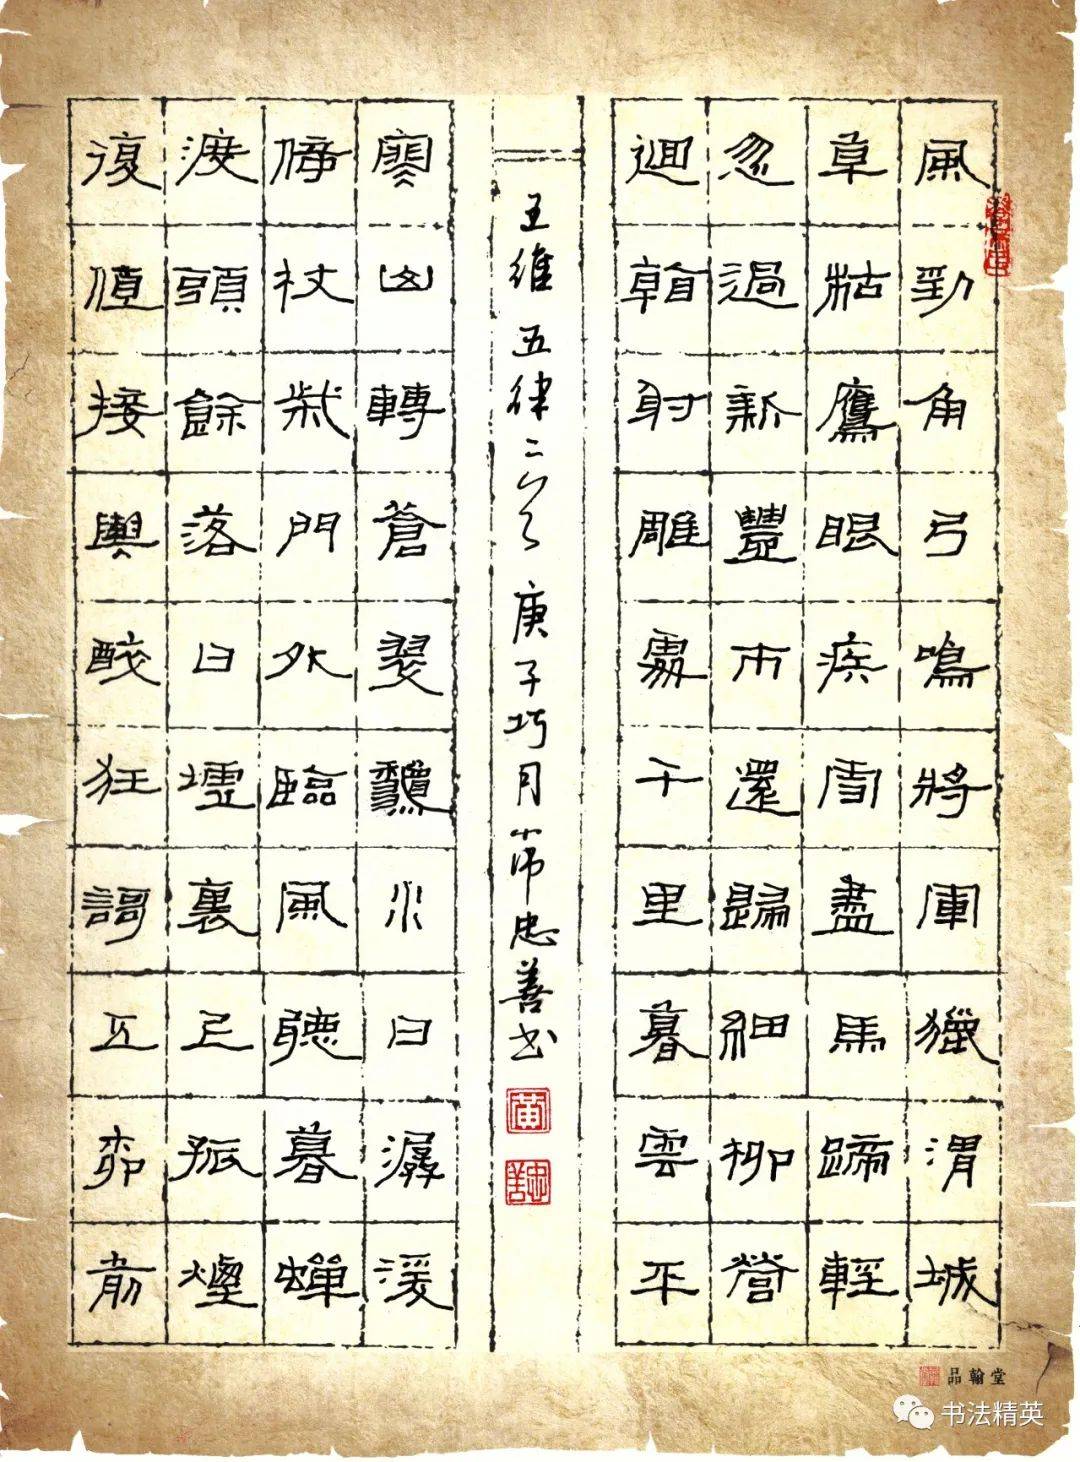 風勁角弓鳴將軍獵渭城
草枯鷹眼疾雪盡馬蹄輕
忽過新豐市還歸細柳營
迴看射雕處千里暮雲平
王維五律二首庚子巧月忠善书
黄
忠善
寒山轉蒼翠秋水日潺湲
倚杖柴門外臨風聽暮蟬
渡頭餘落日墟裏上孤煙
復值接輿醉狂歌五柳前
品翰堂
书法精英